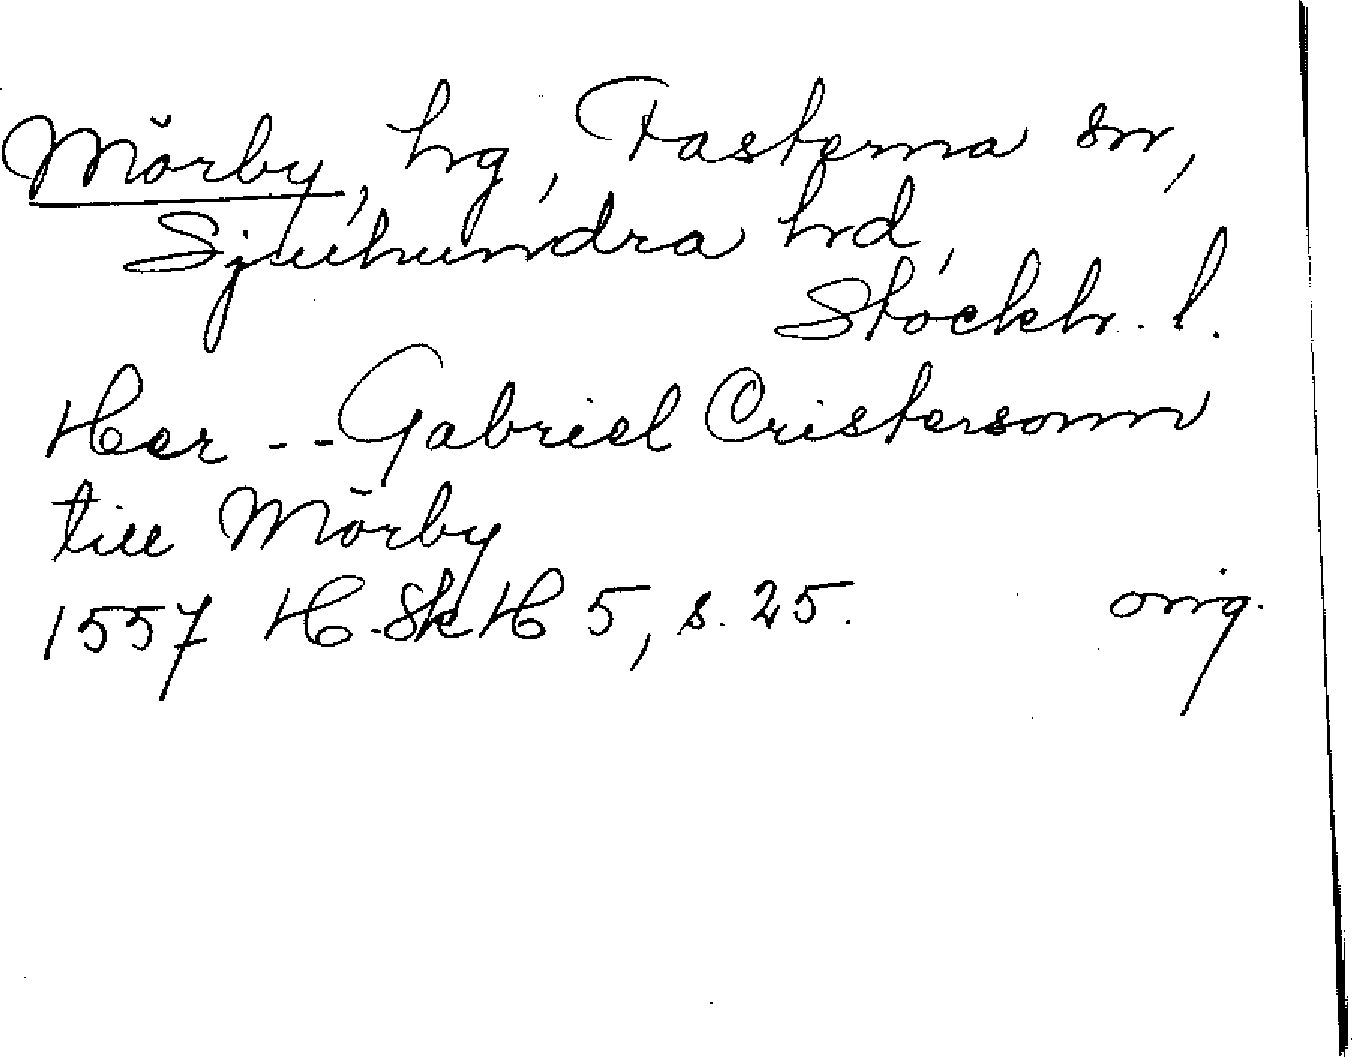 Mörby, hg, Fasterna sn,
Sjuhundra hrd,
Stockh. l.
Her -- Gabriel Cristersonn
till Mörby
1557 HSkH 5, s. 25. orig.